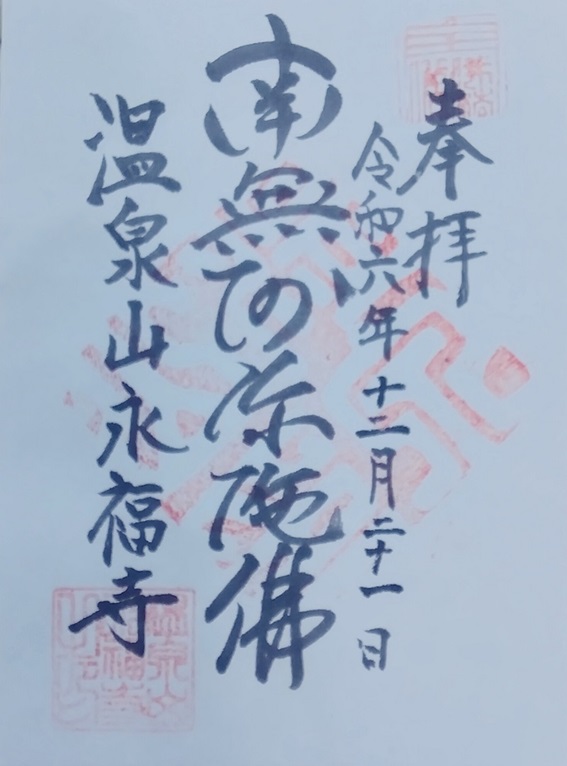 奉拝
令和六年十二月二十一日
南無阿弥陀佛
温泉山永福寺